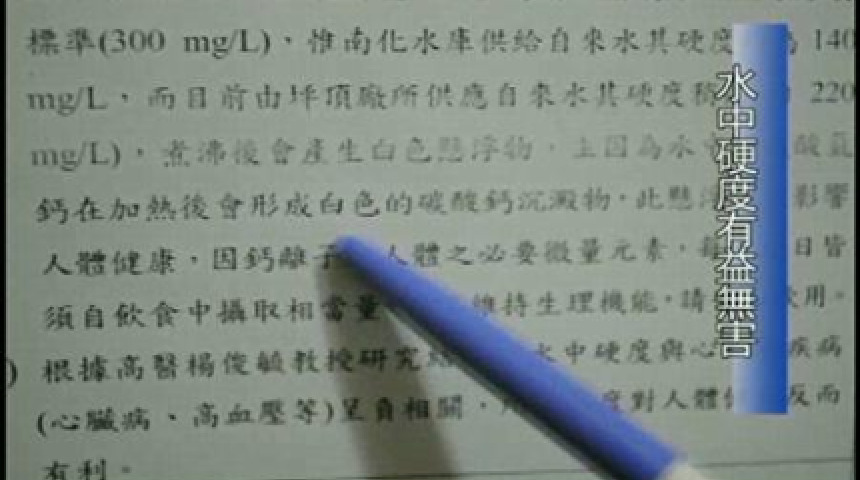 標準(300 mg/L)、惟南化水庫供給自來水其硬度 為 140
mg/L，而目前由坪頂廠所供應自來水其硬度 220
mg/L)，煮沸後會產生白色懸浮物，主因為水 酸氫
鈣在加熱後會形成白色的碳酸鈣沉澱物，此懸浮 影響
人體健康，因鈣離子 人體之必要微量元素，每 日皆
須自飲食中攝取相當量 維持生理機能，請 飲用。
) 根據高醫楊俊毓教授研究 水中硬度與心 疾病
(心臟病、高血壓等)呈負相關， 度對人體 反而
有利。
水中硬度有益無害